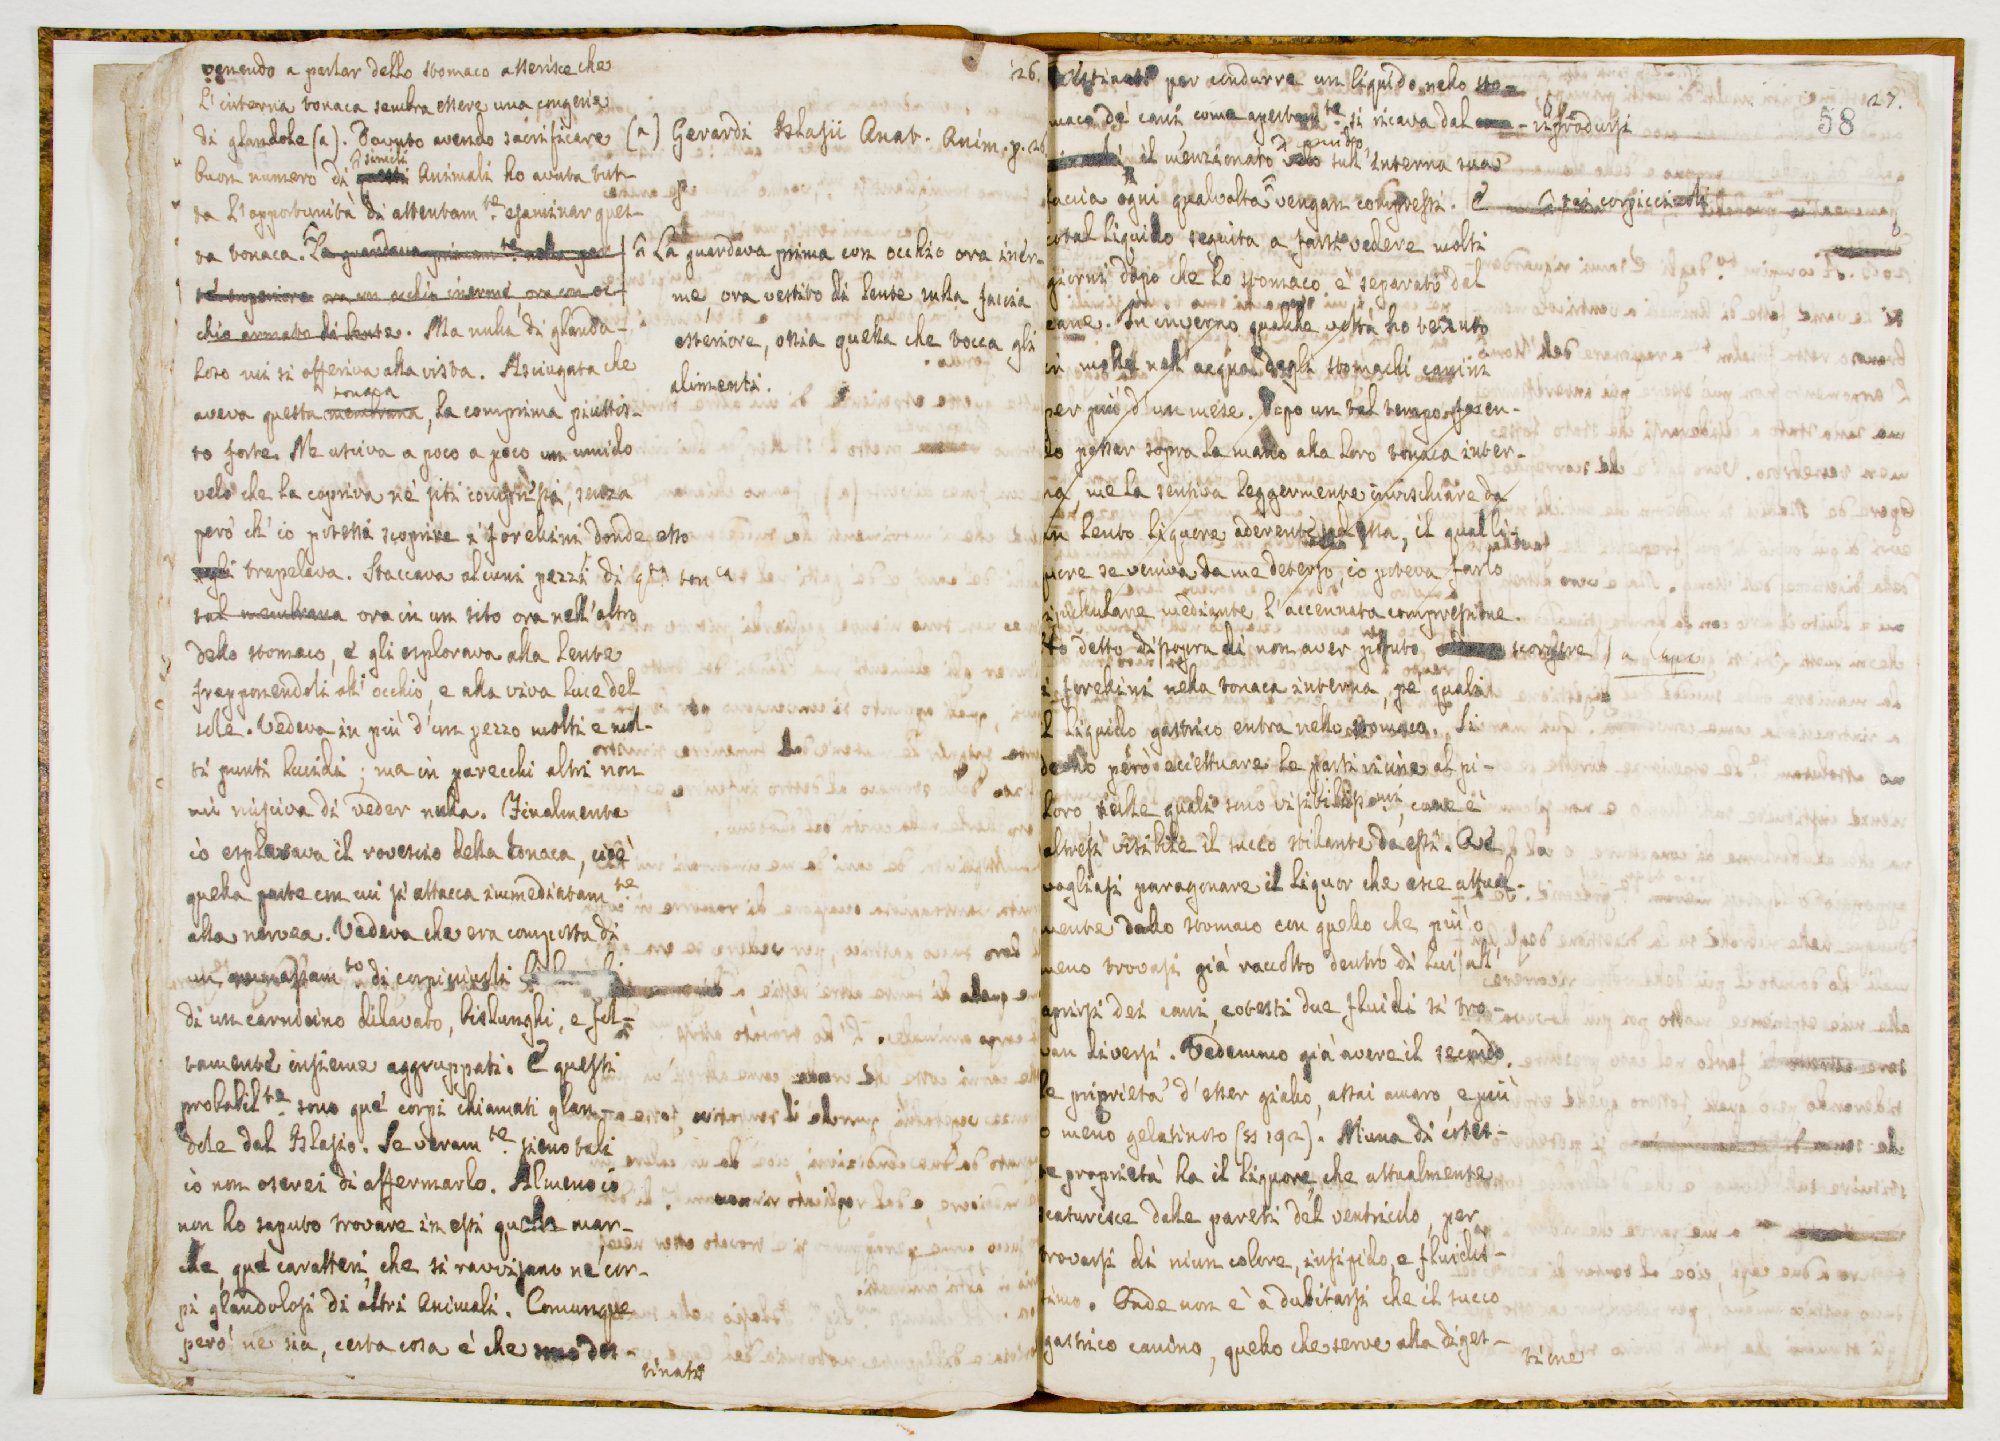 126.
venendo a parlar dello stomaco asserisce che
L'interna tonaca sembra essere una congerie
di glandole (a). Dovuto avendo sacrificare
buon numero di simili Animali ho avuta tut-
ta l'opportunità di attentam.te esaminar ques-
ta tonaca. La guardava primam.te nella par-
te superiore ora con occhio inerme, ora con oc-
chio armato di lente. Ma nulla di glando-
loso mi si offeriva alla vista. Asciugata che
tonaca
aveva questa membrana, la comprima piuttos-
to forte. Ne usciva a poco a poco un umido
velo che la copriva ne' siti compressi, senza
però ch'io potessi scoprire i forellini donde esso
trapelava. Staccava alcuni pezzi di q.ta ton.ca
tal membrana ora in un sito ora nell'altro
dello stomaco, e gli esplorava alla lente
frapponendoli all'occhio, e alla viva luce del
sole. Vedeva in più d'un pezzo molti e mol-
ti punti lucidi; ma in parecchi altri non
mi riusciva di veder nulla. Finalmente
io esplorava il rovescio della tonaca, cioè
quella parte con cui si attacca immediatam.te
alla nervea. Vedeva che era composta di
un ammassam.to di corpicciuoli
di un carnicino dilavato, bislunghi, e fol-
tamente insieme aggruppati. E questi
probabil.te sono que' corpi chiamati glan-
dole dal Blasio. Se veram.te sieno tali
io non oserei di affermarlo. Almeno io
non ho saputo trovare in essi quelle mar-
che, que' caratteri, che si ravvisano ne' cor-
pi glandolosi di altri Animali. Comunque
però ne sia, certa cosa è che sono des-
tinati
(a) Gerardi Blasii Anat. Anim. p. 26
La guardava prima con occhio ora iner-
me, ora vestito di lente sulla faccia
esteriore, ossia quella che tocca gli
alimenti.
127.
58
destinati per condurre un liquido nello sto-
maco de' cani, come apertam.te si ricava dal riprodursi
il menzionato umido velo sull'interna sua
faccia ogni qualvolta vengan compressi. E
tai corpicciuoli
cotal liquido seguita a farsi vedere molti
giorni dopo che lo stomaco è separato dal
cane. In inverno qualche volta ho tenuto
in molle nell'acqua degli stomachi canini
per più d'un mese. Dopo un tal tempo facen-
do passar sopra la mano alla loro tonaca inter-
na, me la sentiva leggermente invischiare da
un lento liquore aderente ad essa, il qual li-
quore se veniva da me deterso, io poteva farlo
ripullulare mediante l'accennata compressione.
Ho detto di sopra di non aver potuto scorgere
i forellini nella tonaca interna, pe' quali
il liquido gastrico entra nello stomaco. Si
però eccettuare le parti vicine al pi-
loro, nelle quali sono visibilissimi, come è
altresì visibile il succo stillante da essi. Ove
vogliasi paragonare il liquor che esce attual-
mente dallo stomaco con quello che più o
meno trovasi già raccolto dentro di lui all'
aprirsi dei cani, cotesti due fluidi si tro-
van diversi. Vedemmo già avere il secondo
le proprietà d'esser giallo, assai amaro, e più
o meno gelatinoso (§§ 192). Niuna di cotes-
te proprietà ha il liquore, che attualmente
scaturisce dalle pareti del ventricolo, per
trovarsi di niun colore, insipido, e fluidis-
simo. Onde non è a dubitarsi che il succo
gastrico canino, quello che serve alla diges-
tione